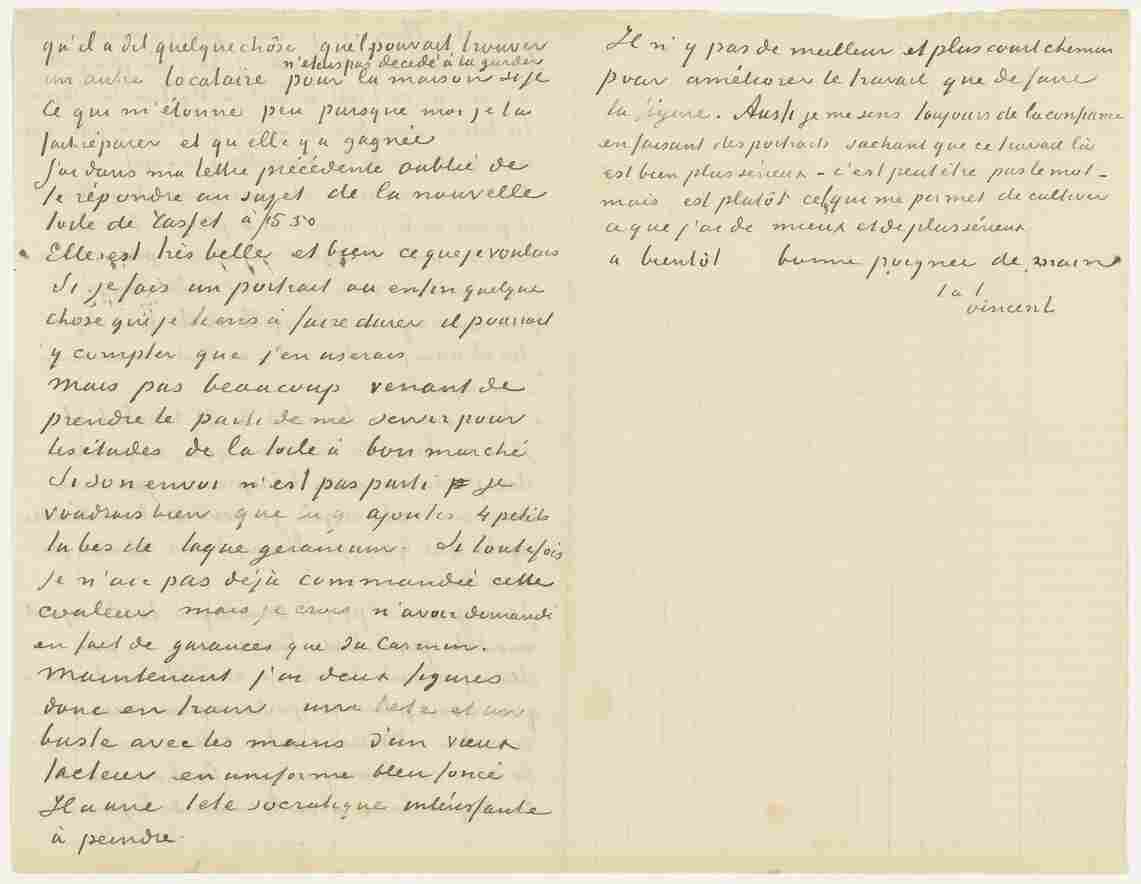 qu'il a dit quelque chôse qu'il pouvait trouver
n'etais pas decidé à la garder
un autre locataire pour la maison si je
Ce qui m'étonne peu puisque moi je l'ai
fait réparer et qu'elle y a gagnée
J'ai dans ma lettre précédente oublié de
te répondre au sujet de la nouvelle
toile de Tasset à 5.50
Elle est très belle et bien ce que je voulais
Si je fais un portrait ou enfin quelque
chôse que je tiens à faire durer il pourrait
y compter que j'en userais
mais pas beaucoup venant de
prendre le parti de me servir pour
les études de la toile à bon marché
Si son envoi n'est pas parti je
voudrais bien que tu y ajoutes 4 petits
tubes de laque geranium. Si toutefois
Je n'aie pas déjà commandé cette
couleur mais je crois n'avoir demandé
en fait de garances que du Carmin.
Maintenant j'ai deux figures
donc en train une tete et un
buste avec les mains d'un vieux
facteur en uniforme bleu foncé
Il a une tete socratique intéressante
à peindre
Il n'y pas de meilleur et plus court chemin
pour améliorer le travail que de faire
la figure. Aussi je me sens toujours de la confiance
en faisant des portraits sachant que ce travail là
est bien plus sérieux – c'est peut être pas le mot –
mais est plutôt ce qui me permet de cultiver
ce que j'ai de mieux et de plus sérieux
a bientôt bonne poignée de main
t. à t.
Vincent